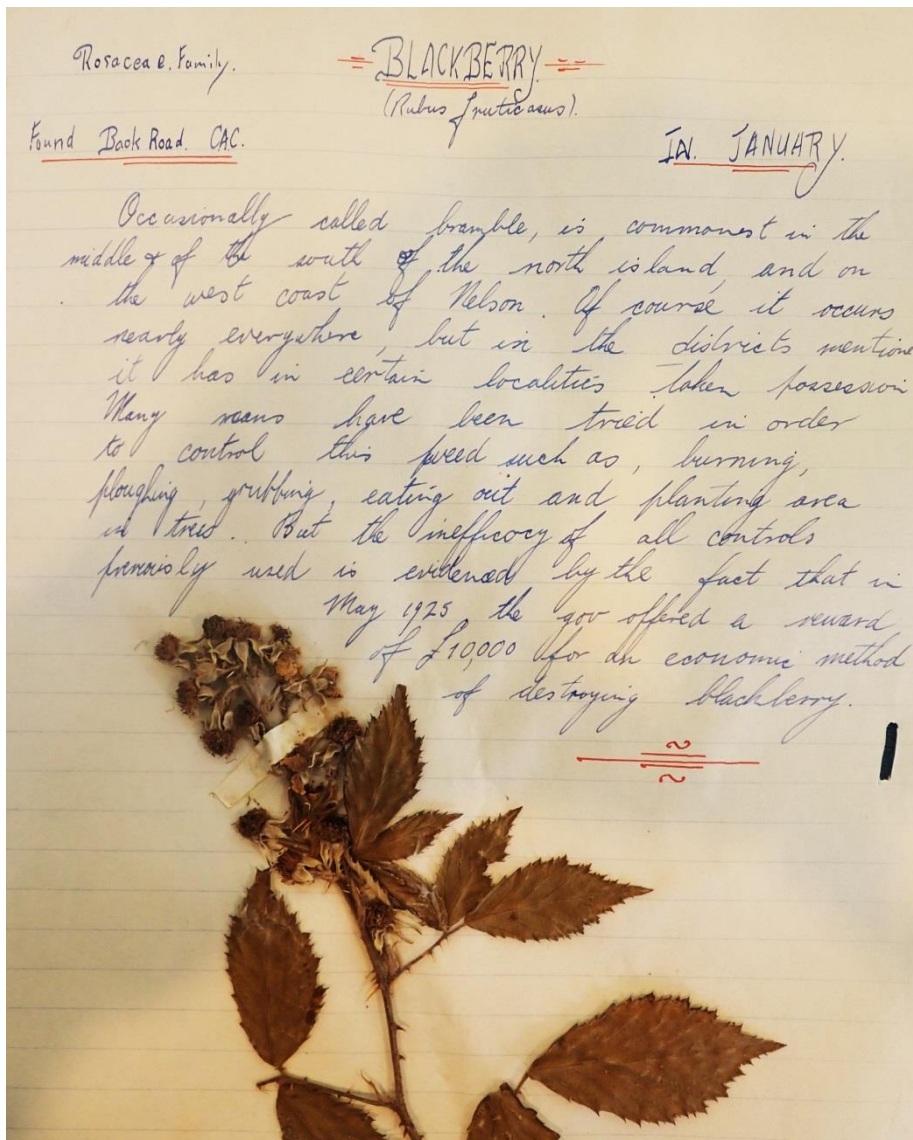 Rosaceae. Family.
BLACKBERRY.
(Rubus fruticasus).
Found Back Road. CAC.
IN. JANUARY.
Occasionally called bramble, is commonest in the
middle & of the south of the north island, and on
the west coast of Nelson. Of course it occurs
nearly everywhere, but in the districts mentione
it has in certain localities taken possession
Many means have been tried in order
to control this weed such as, burning,
ploughing, grubbing, eating out and planting area
in trees. But the inefficocy of all controls
previously used is evidenced by the fact that in
May 1925 the gov offered a reward
of £10,000 for an economic method
of destroying blackberry.